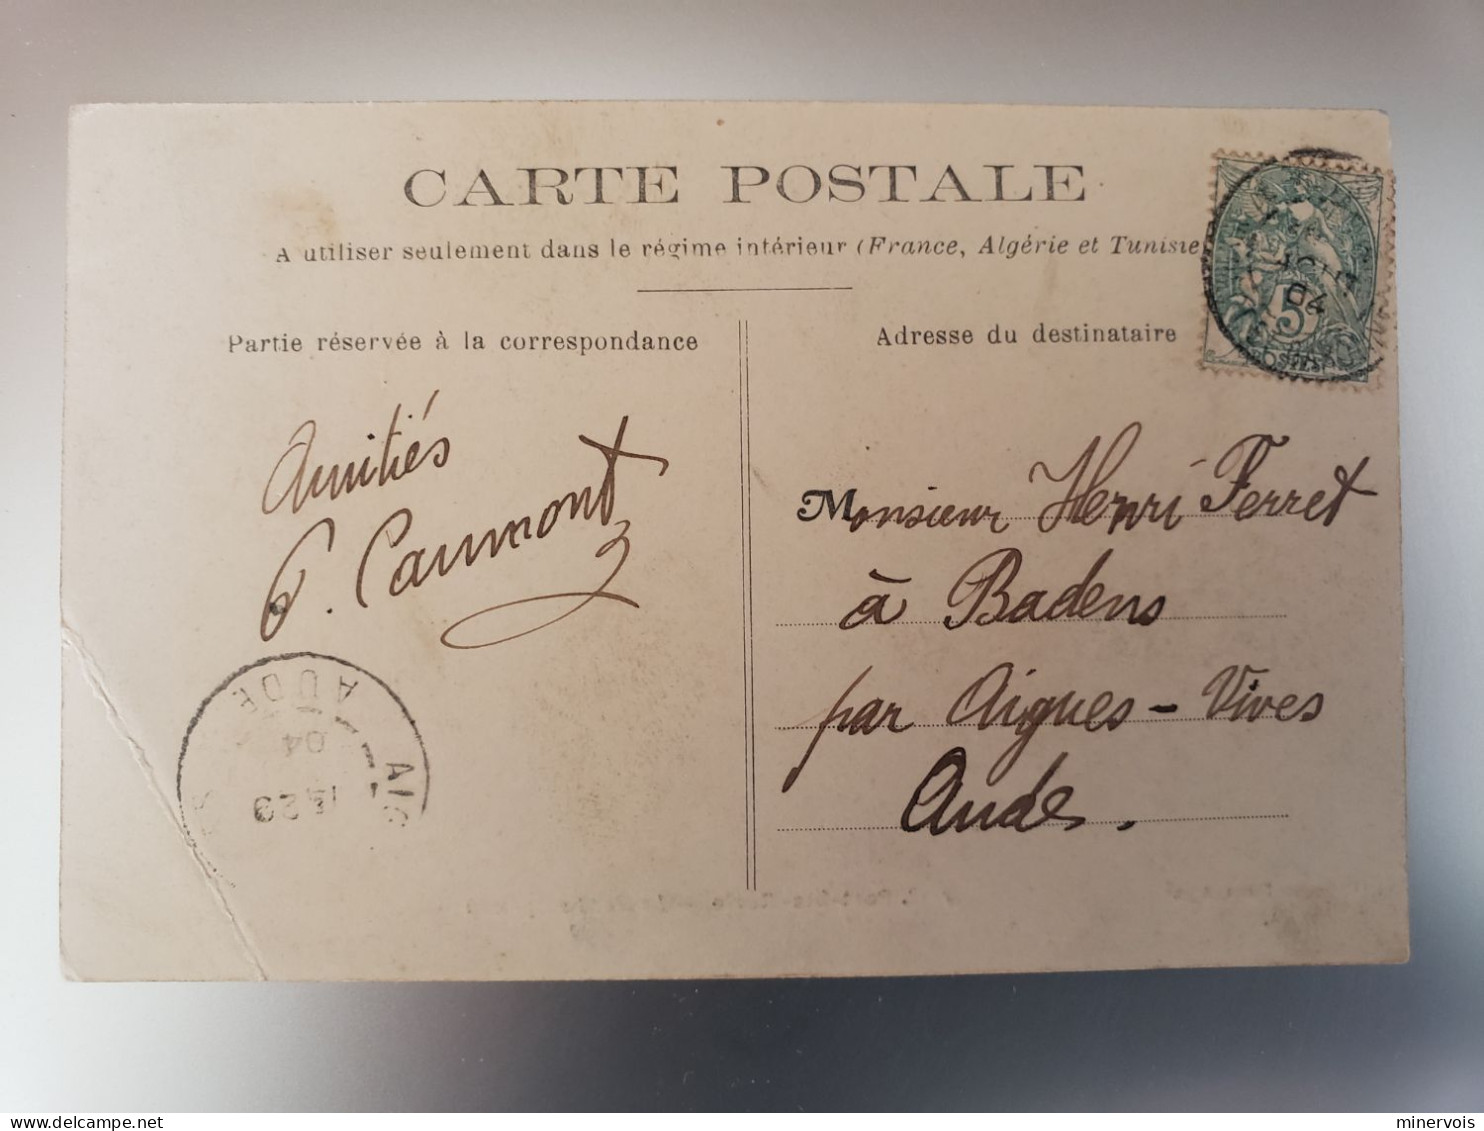 CARTE POSTALE
A utiliser seulement dans le régime intérieur (France, Algérie et Tunisie
Partie réservée à la correspondance
Adresse du destinataire
5
AOUT
04
Amitiés
P. Caumont
Monsieur Henri Ferret
à Badens
par Aigues-Vives
Aude.
AUDE
04
AIG
minervois